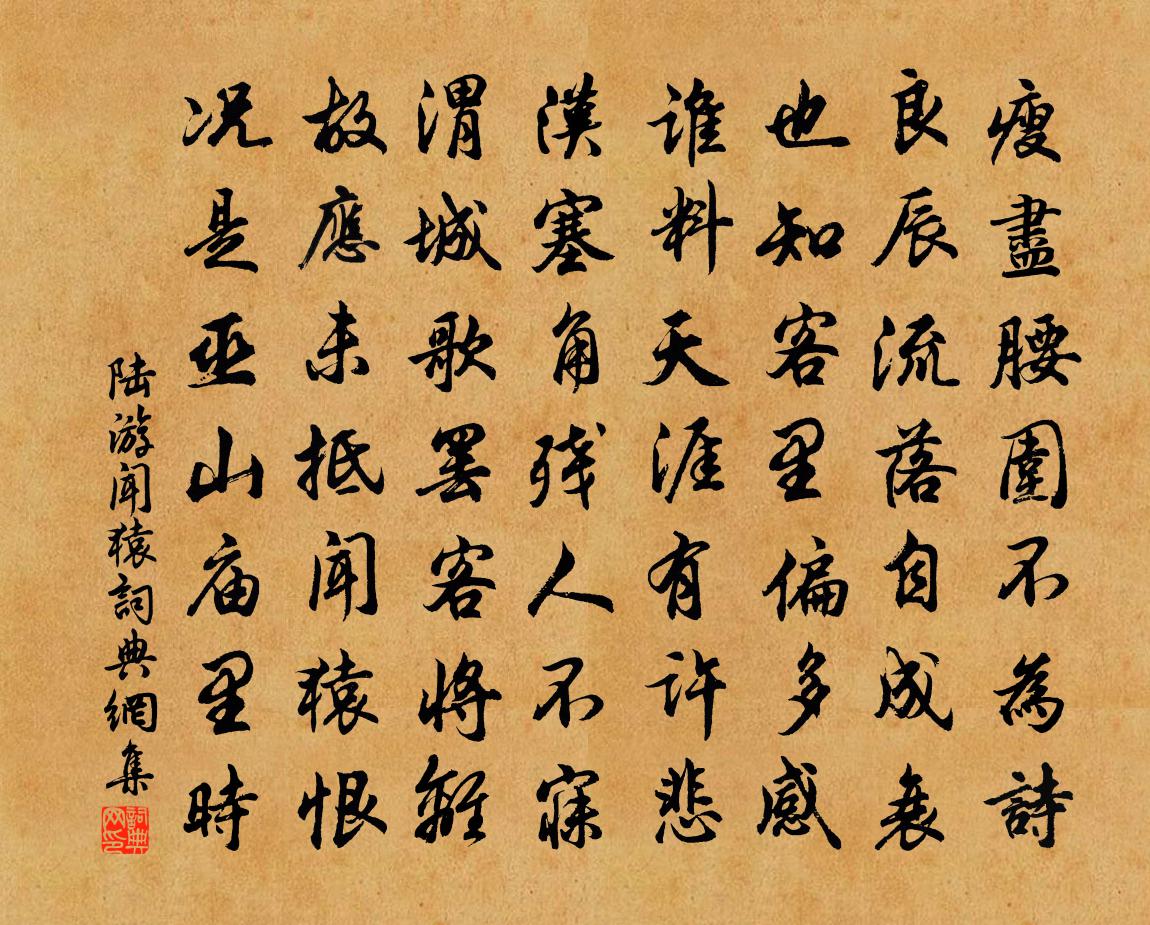 瘦盡腰圍不為詩
良辰流落自成衰
也知客里偏多感
誰料天涯有許悲
漢塞角殘人不寐
渭城歌罷客將離
故應未抵聞猿恨
况是巫山庙里時
陆游聞猿詞典網集
詞典网印